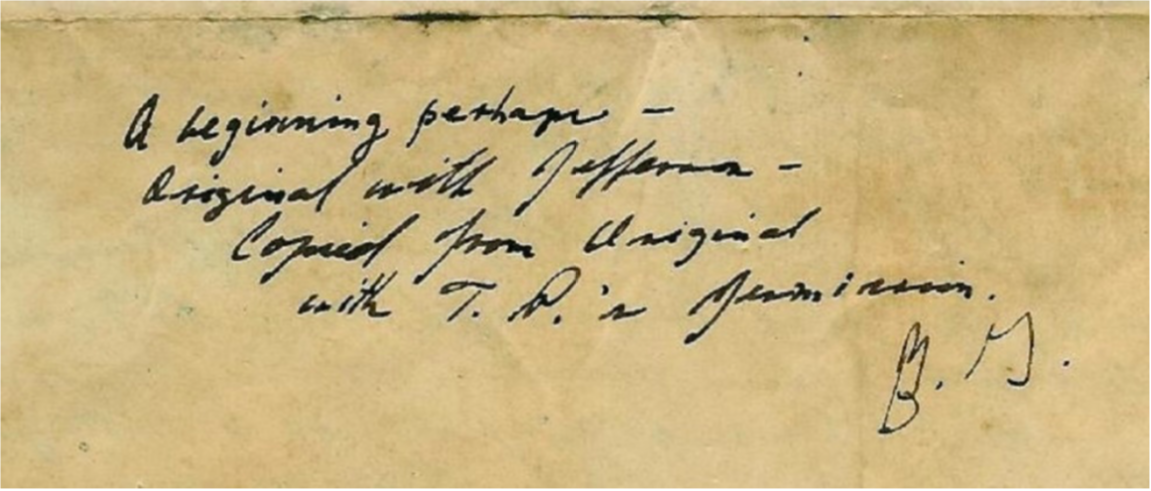 A beginning perhaps –
Original with Jefferson –
Copied from Original
with T. P.'s permission.
B.